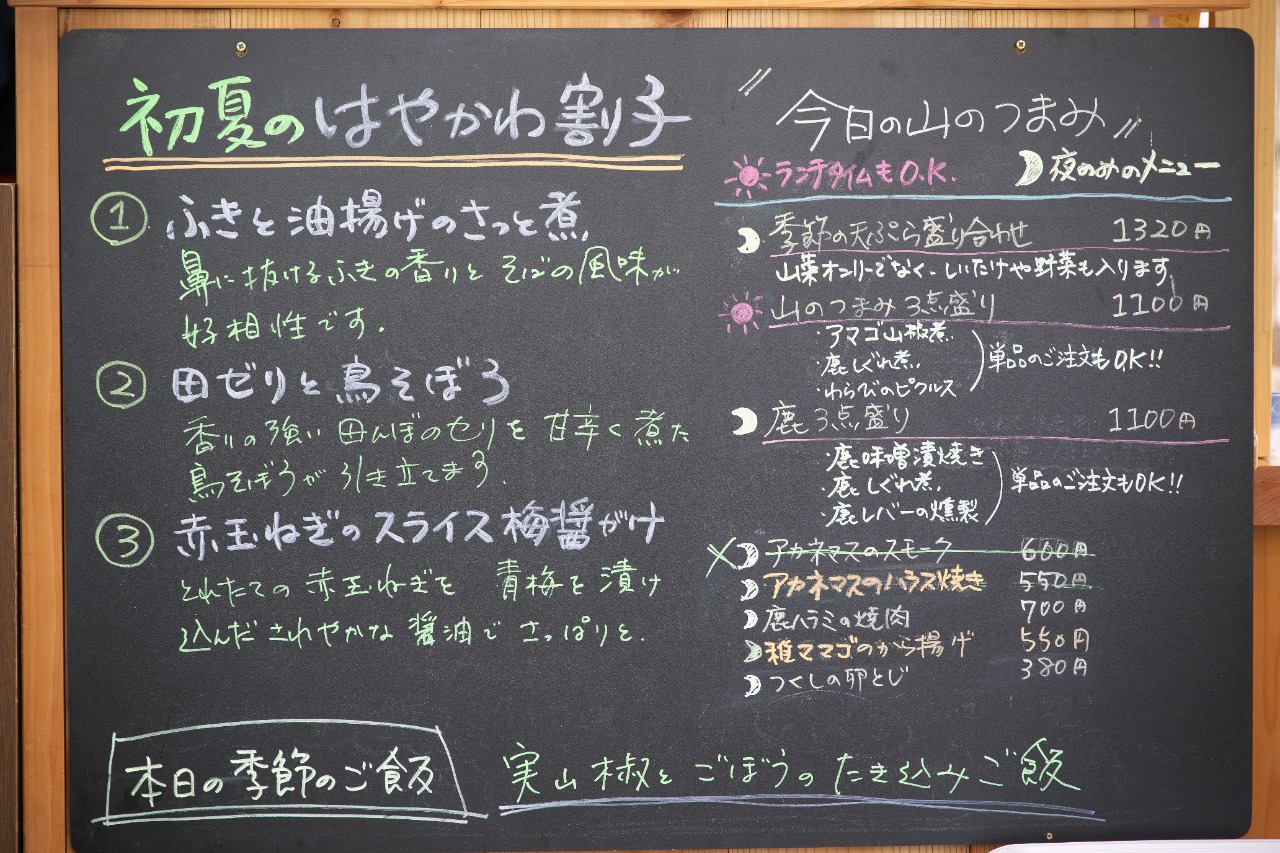 初夏のはやかわ割子
① ふきと油揚げのさっと煮
鼻に抜けるふきの香りと そばの風味が
好相性です.
② 田ゼリと鳥そぼろ
香りの強い 田んぼのセリを 甘辛く煮た
鳥そぼろが引き立てます.
③ 赤玉ねぎのスライス梅醤がけ
とれたての 赤玉ねぎを 青梅を漬け
込んださわやかな 醤油で さっぱりと.
本日の季節のご飯
実山椒と ごぼうの たき込みご飯
〃今日の山のつまみ〃
ランチタイムもO.K.
夜のみのメニュー
季節の天ぷら盛り合わせ 1320円
山菜オンリーでなく、しいたけや野菜も入ります
山のつまみ 3点盛り 1100円
・アマゴ山椒煮
・鹿しぐれ煮
・わらびのピクルス
単品のご注文もOK!!
鹿 3点盛り 1100円
・鹿味噌漬焼き
・鹿しぐれ煮
・鹿レバーの燻製
単品のご注文もOK!!
アカネマスのスモーク 600円
アカネマスのハラス焼き 550円
鹿ハラミの焼肉 700円
稚ママゴのから揚げ 550円
つくしの卵とじ 380円